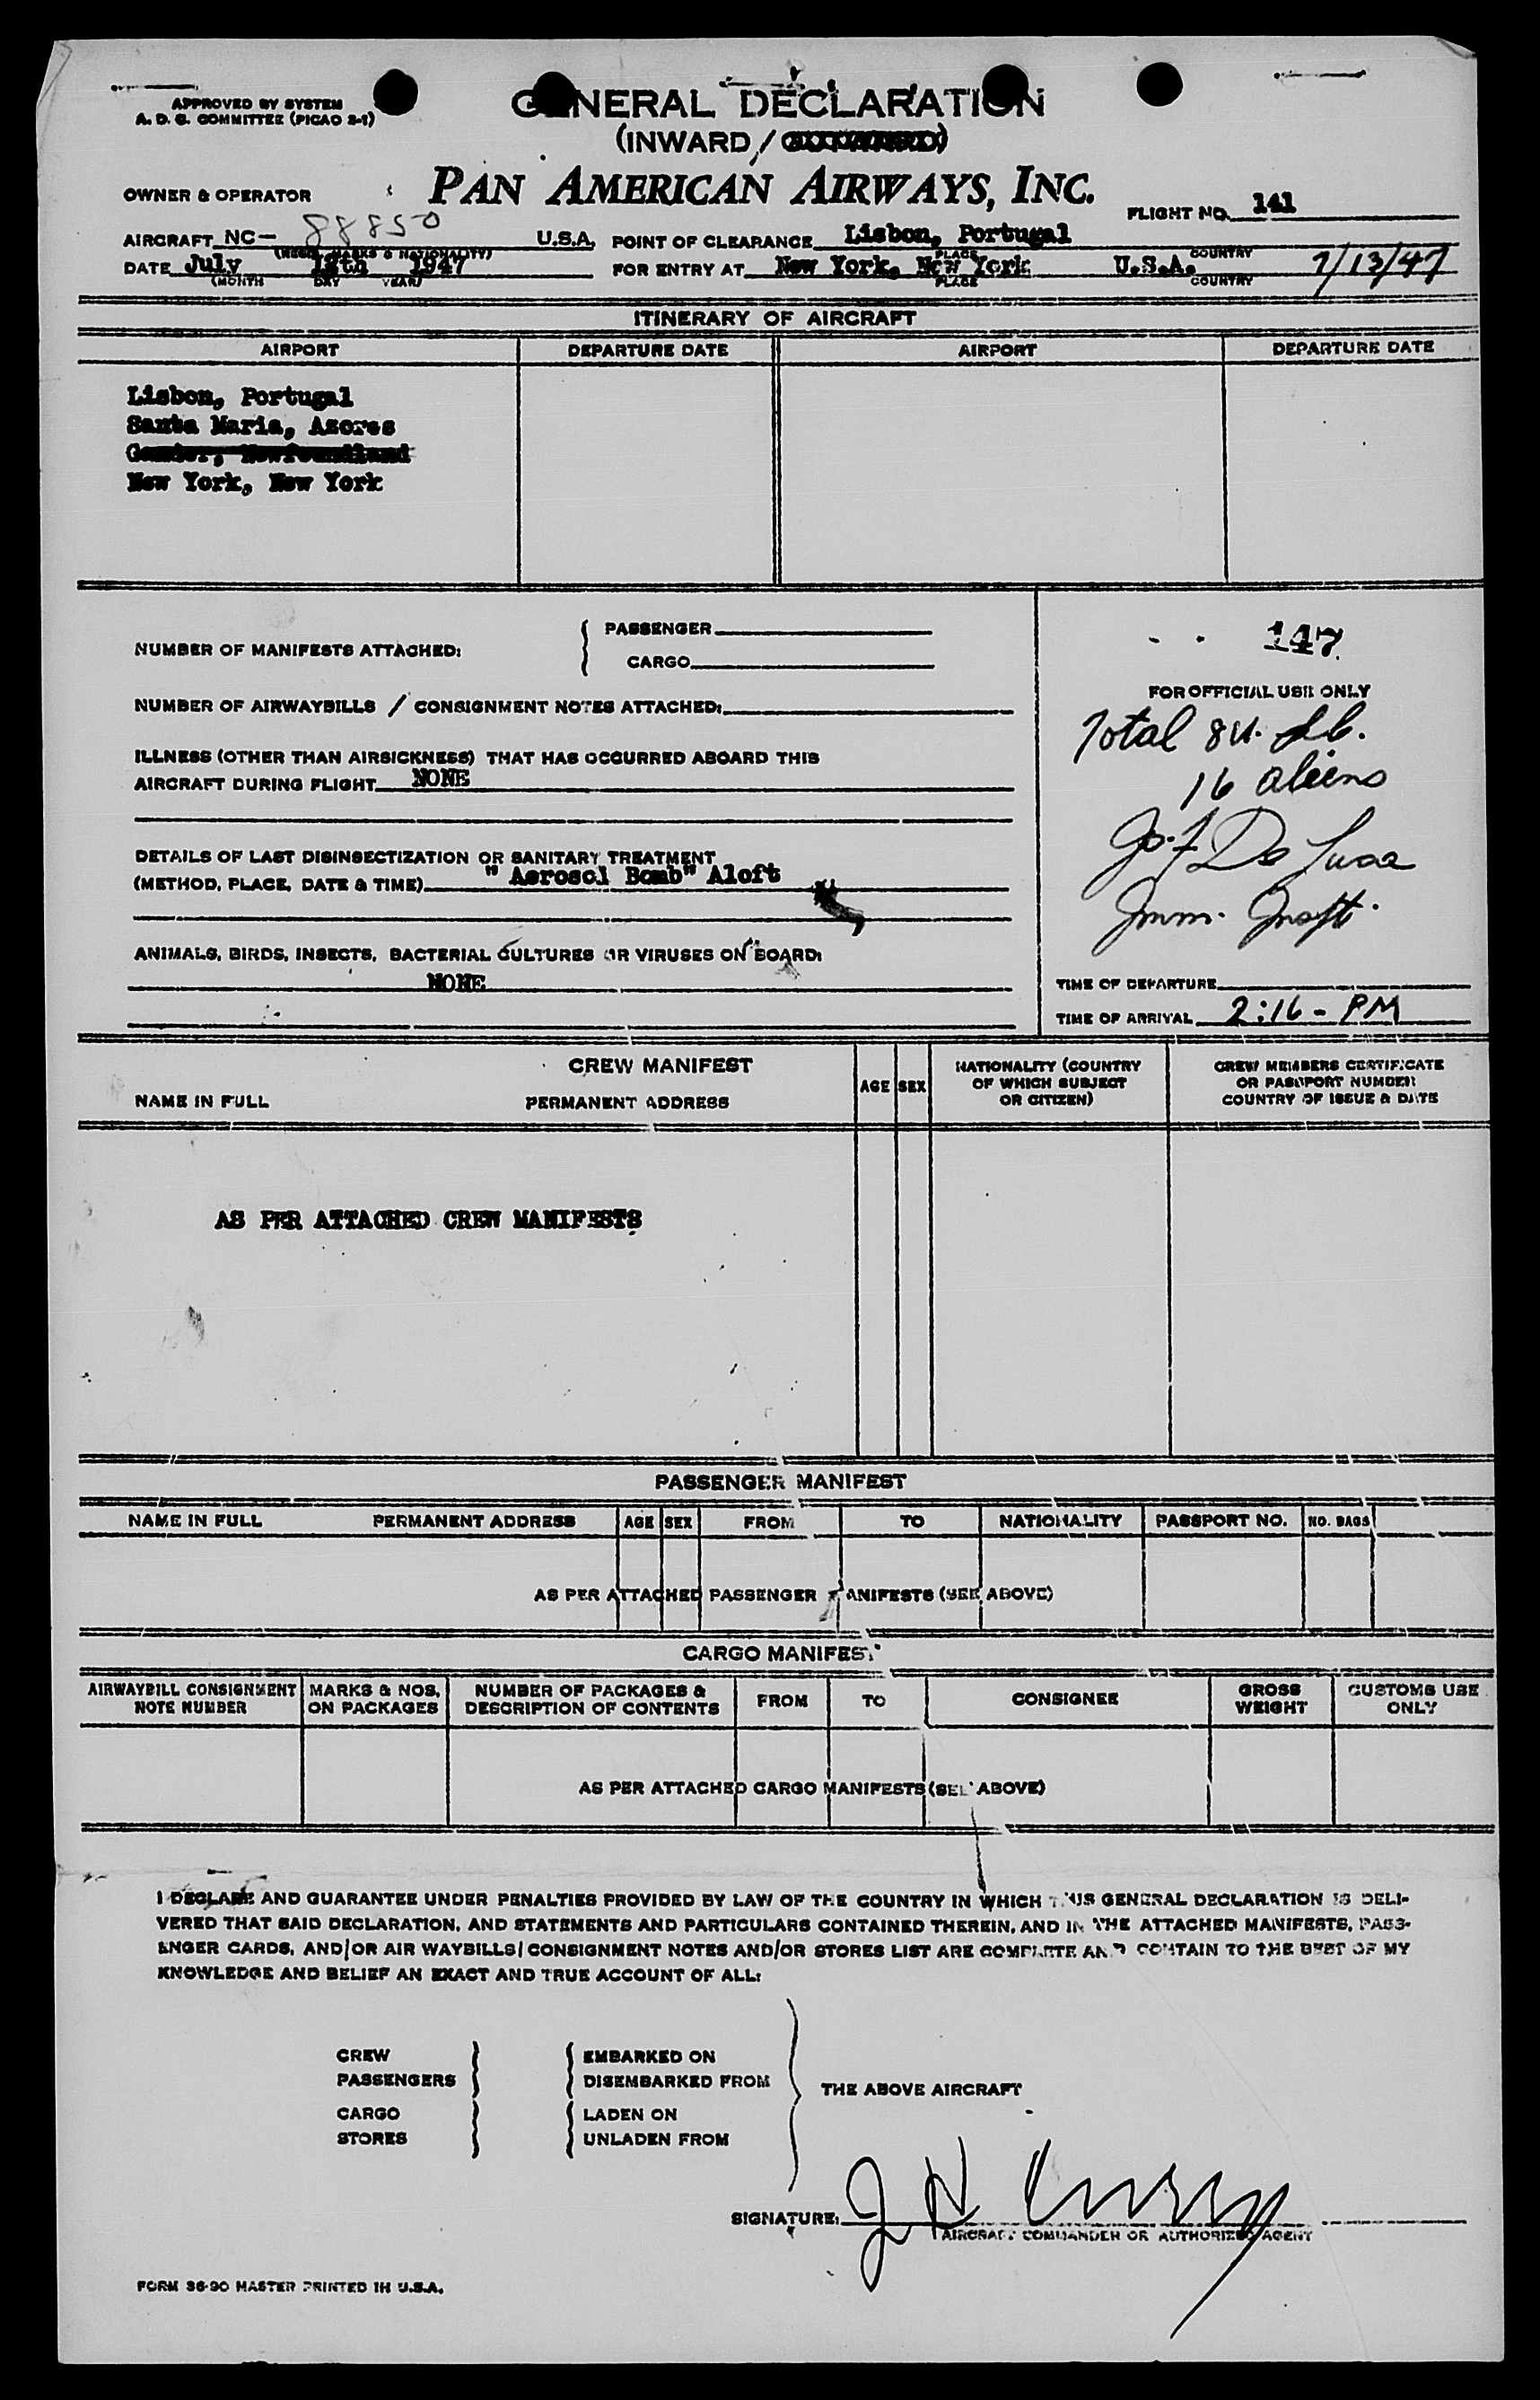 APPROVED BY SYSTEM
A. D. G. COMMITTEE (PICAO 2-1)
GENERAL DECLARATION
(INWARD / OUTWARD)
OWNER & OPERATOR
PAN AMERICAN AIRWAYS, INC.
FLIGHT NO. 141
AIRCRAFT NC- 88850 U.S.A. POINT OF CLEARANCE Lisbon, Portugal
(REG. MARKS & NATIONALITY) PLACE COUNTRY
DATE July 12th 1947 FOR ENTRY AT New York, New York U.S.A. 7/13/47
(MONTH DAY YEAR) PLACE COUNTRY
ITINERARY OF AIRCRAFT
AIRPORT DEPARTURE DATE AIRPORT DEPARTURE DATE
Lisbon, Portugal
Santa Maria, Azores
Gander, Newfoundland
New York, New York
NUMBER OF MANIFESTS ATTACHED: PASSENGER
CARGO
147
NUMBER OF AIRWAYBILLS / CONSIGNMENT NOTES ATTACHED:
FOR OFFICIAL USE ONLY
Total
16 aliens
ILLNESS (OTHER THAN AIRSICKNESS) THAT HAS OCCURRED ABOARD THIS
AIRCRAFT DURING FLIGHT NONE
DETAILS OF LAST DISINSECTIZATION OR SANITARY TREATMENT
(METHOD, PLACE, DATE & TIME) "Aerosol Bomb" Aloft
Jo. F De Luca
Imm. Inspt.
ANIMALS, BIRDS, INSECTS, BACTERIAL CULTURES OR VIRUSES ON BOARD:
NONE
TIME OF DEPARTURE
TIME OF ARRIVAL 2:16 - PM
CREW MANIFEST
NAME IN FULL PERMANENT ADDRESS AGE SEX NATIONALITY (COUNTRY OF WHICH SUBJECT OR CITIZEN) CREW MEMBERS CERTIFICATE OR PASSPORT NUMBER COUNTRY OF ISSUE & DATE
AS PER ATTACHED CREW MANIFESTS
PASSENGER MANIFEST
NAME IN FULL PERMANENT ADDRESS AGE SEX FROM TO NATIONALITY PASSPORT NO. NO. BAGS
AS PER ATTACHED PASSENGER MANIFESTS (SEE ABOVE)
CARGO MANIFEST
AIRWAYBILL CONSIGNMENT NOTE NUMBER MARKS & NOS. ON PACKAGES NUMBER OF PACKAGES & DESCRIPTION OF CONTENTS FROM TO CONSIGNEE GROSS WEIGHT CUSTOMS USE ONLY
AS PER ATTACHED CARGO MANIFESTS (SEE ABOVE)
I DECLARE AND GUARANTEE UNDER PENALTIES PROVIDED BY LAW OF THE COUNTRY IN WHICH THIS GENERAL DECLARATION IS DELI-
VERED THAT SAID DECLARATION, AND STATEMENTS AND PARTICULARS CONTAINED THEREIN, AND IN THE ATTACHED MANIFESTS, PASS-
ENGER CARDS, AND/OR AIR WAYBILLS/CONSIGNMENT NOTES AND/OR STORES LIST ARE COMPLETE AND CONTAIN TO THE BEST OF MY
KNOWLEDGE AND BELIEF AN EXACT AND TRUE ACCOUNT OF ALL:
CREW EMBARKED ON
PASSENGERS DISEMBARKED FROM
THE ABOVE AIRCRAFT
CARGO LADEN ON
STORES UNLADEN FROM
SIGNATURE:
AIRCRAFT COMMANDER OR AUTHORIZED AGENT
FORM 36-90 MASTER PRINTED IN U.S.A.